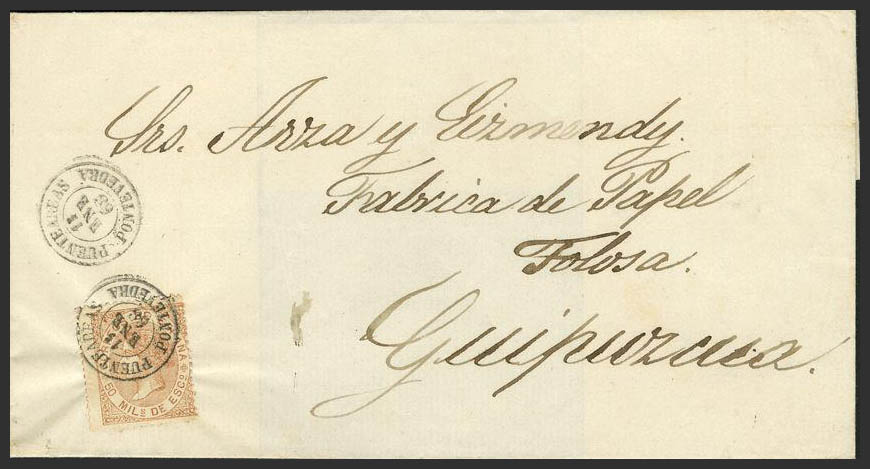 Srs. Arza y Eizmendy.
Fabrica de Papel
Tolosa.
Guipuzcua
PUENTEAREAS
PONTEVEDRA
11
ENE
69
PUENTEAREAS
PONTEVEDRA
ENE
50 MILS DE ESCO